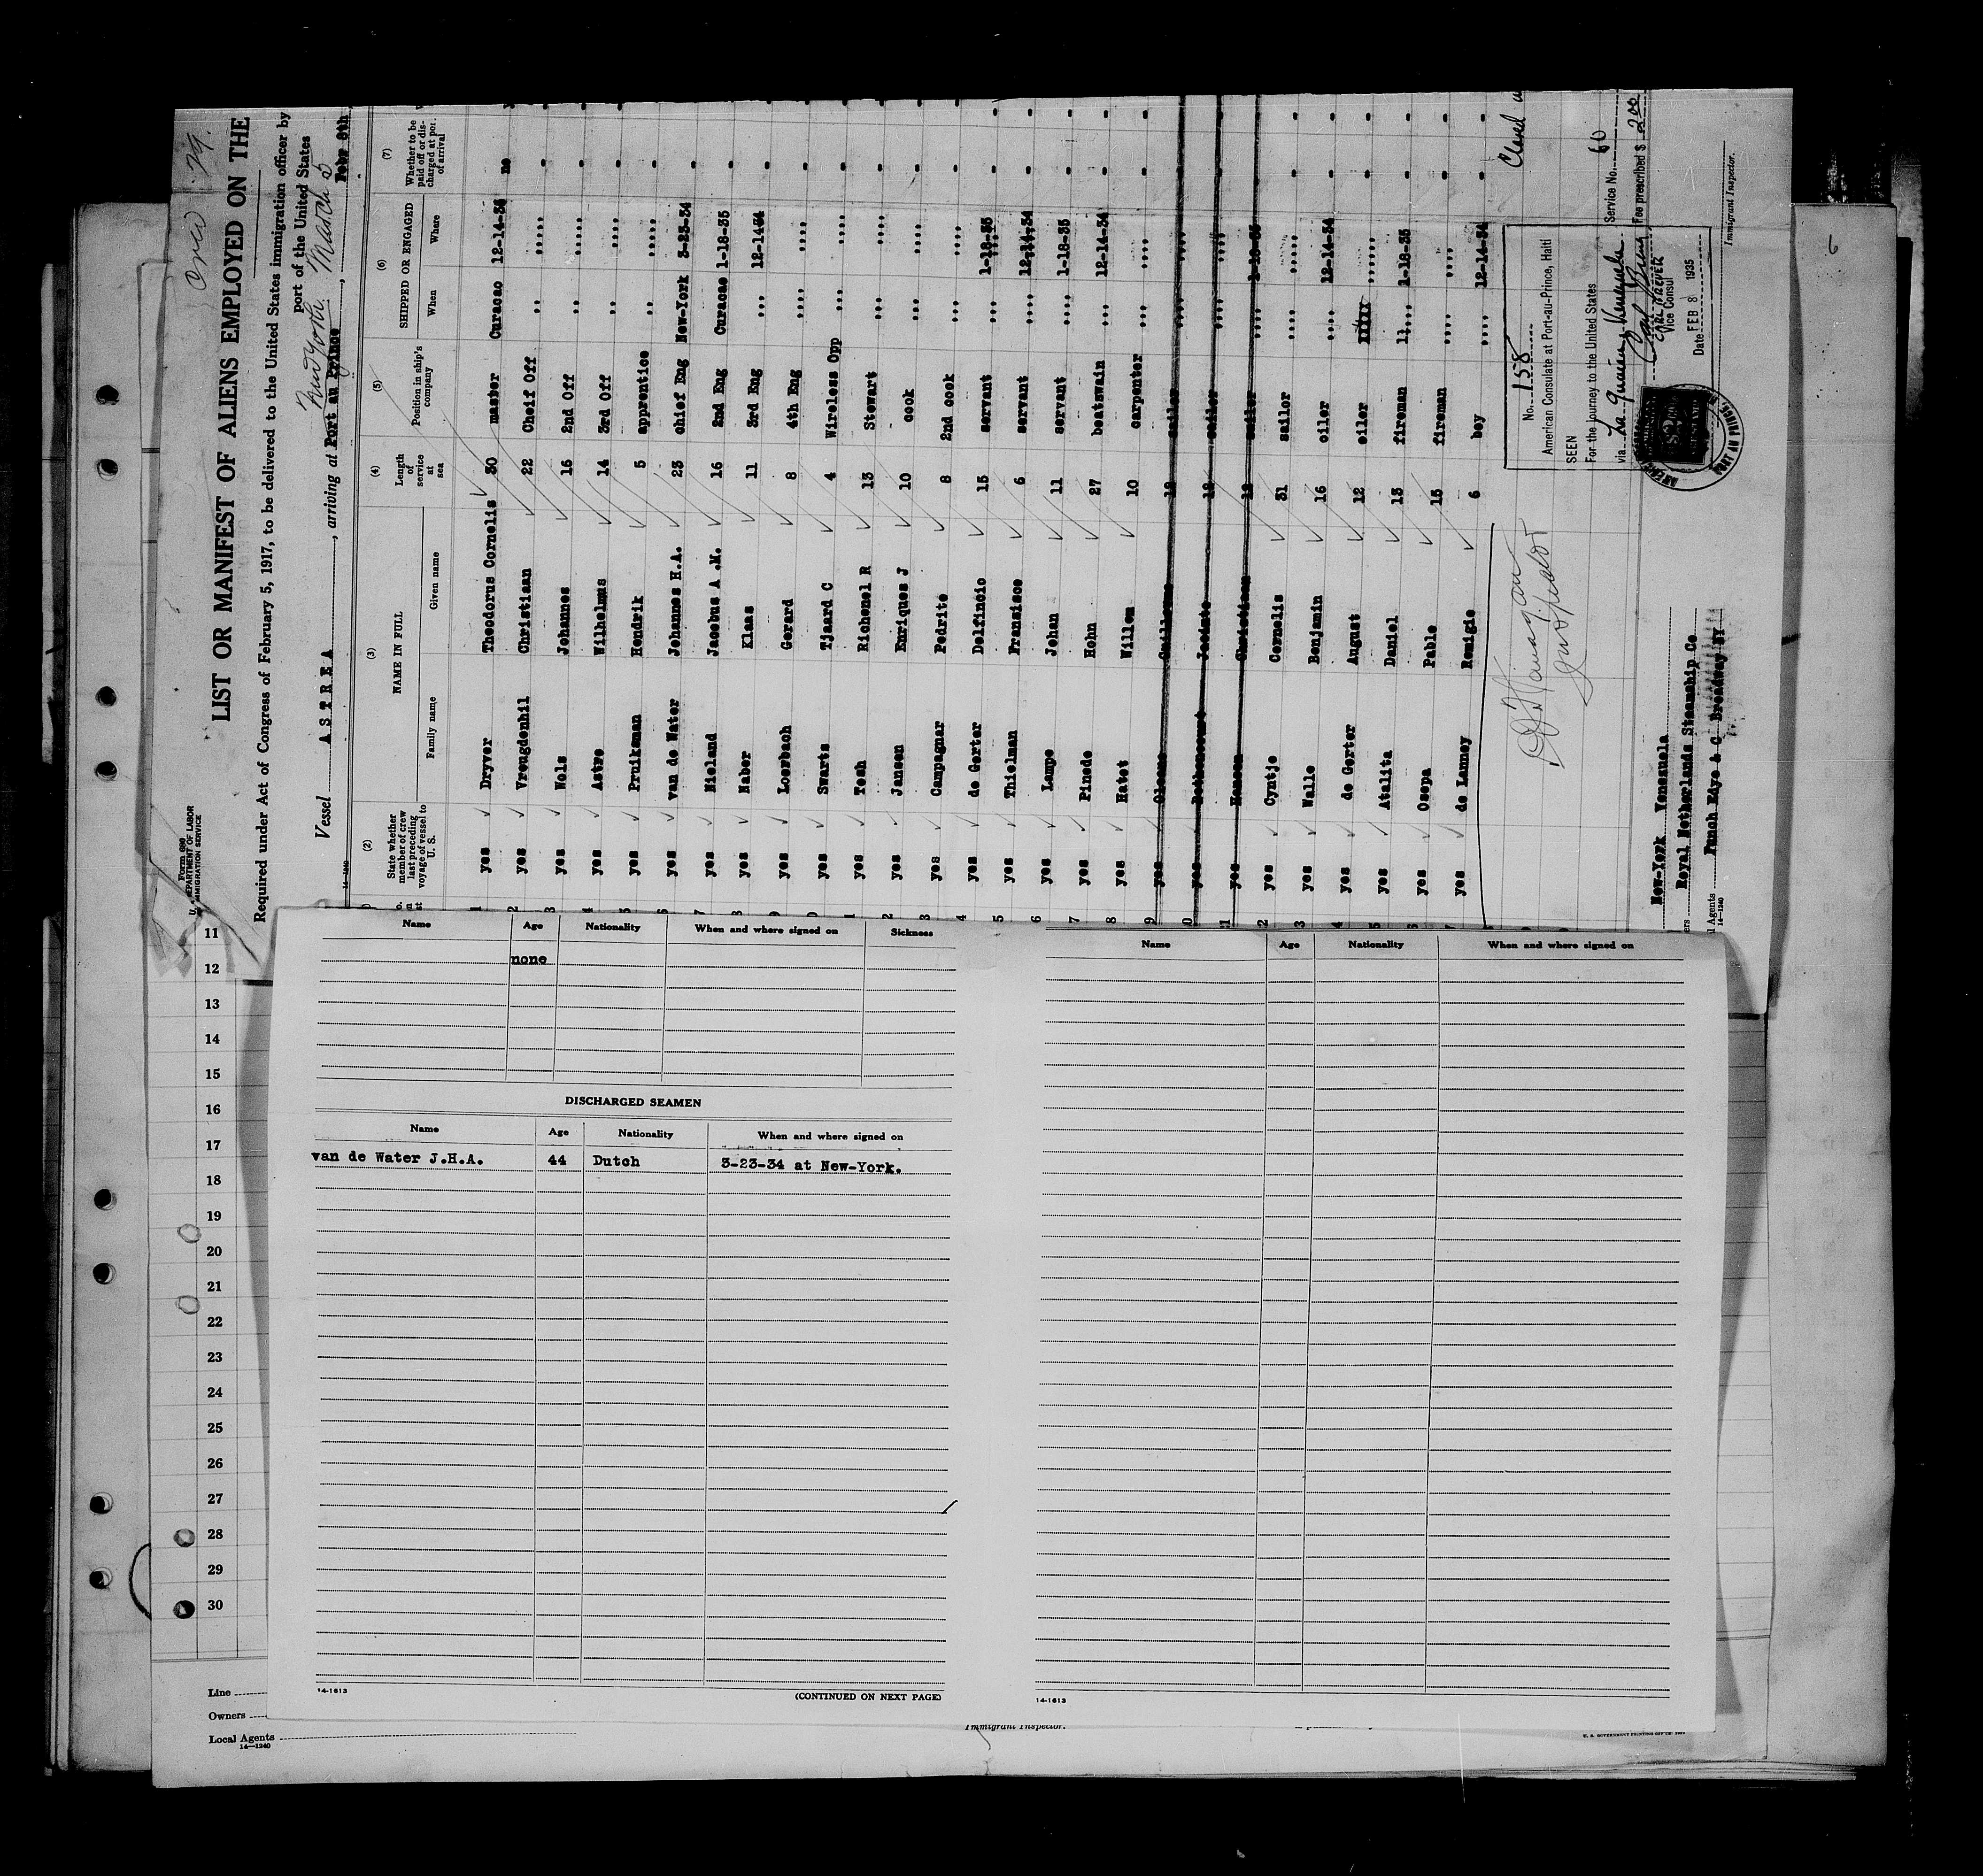 Crew 79.
Form 689
U. S. DEPARTMENT OF LABOR
IMMIGRATION SERVICE
LIST OR MANIFEST OF ALIENS EMPLOYED ON THE
Required under Act of Congress of February 5, 1917, to be delivered to the United States immigration officer by
port of the United States
New York. March 5
Vessel A S T R E A, arriving at Port au Prince, Febr 8th
14-1240
(2) (3) (4) (5) (6) (7)
State whether member of crew last preceding voyage of vessel to U. S.
NAME IN FULL
Family name Given name
Length of service at sea
Position in ship's company
SHIPPED OR ENGAGED
When Where
Whether to be paid off or discharged at port of arrival
1 yes Dryver Theodorus Cornelis 30 master Curacao 12-14-34 no
2 yes Vreugdenhil Christiaan 22 Cheif Off ,, ,,,,, -
3 yes Wols Johannes 16 2nd Off ,, ,,,,, -
4 yes Astro Wilhelmus 14 3rd Off ,, ,,,, -
5 yes Pruiksman Hendrik 5 apprentice ,, ,,,,, -
6 yes van de Water Johannes H.A. 23 chief Eng New-York 3-23-34 -
7 yes Nieland Jacobus A .M. 16 2nd Eng Curacao 1-18-35 -
8 yes Naber Klaas 11 3rd Eng ,,, 12-1444 -
9 yes Loerbach Gerard 8 4th Eng ,,,, ,,,, -
0 yes Swarts Tjaard C 4 Wireless Opp ,,, ,,,, -
1 yes Tosh Richenel R 13 Stewart ,,, ,,,, -
2 yes Jansen Enriques J 10 cook ,,, ,,,, -
3 yes Campagnar Pedrito 8 2nd cook ,,, ,,,, -
4 yes de Gorter Delfincio 15 servant ,,,, 1-18-35 -
5 yes Thielman Fransisco 6 servant ,,,, 12-14-34 -
6 yes Lampe Johan 11 servant ,,,, 1-18-35 -
7 yes Pinedo Hohn 27 boatswain ,,, 12-14-34 -
8 yes Hatot Willem 10 carpenter ,,, ,,,, -
9 yes 12 sailor ,,,, ,,,, -
0 yes Bethencourt Jacinto 12 sailor ,,,, ,,,, -
11 yes Hansen Christiaan 12 sailor ,,,, 1-18-35 -
2 yes Cyntje Cornelis 31 sailor ,,,, ,,,,, -
3 yes Walle Benjamin 16 oiler ,,,, 12-14-34 -
4 yes de Gorter August 12 oiler xxxxx ,,,,,, -
5 yes Atalita Daniel 13 fireman 11,,,, 1-18-35 -
6 yes Osepa Pablo 15 fireman ,,,, ,,,, -
7 yes de Lannoy Remigio 6 boy ,,,, 12-14-34 -
Closed
No. 158
American Consulate at Port-au-Prince, Haiti
SEEN
For the journey to the United States
via La Guaira, Venezuela
CARL BREUER
Vice Consul
Date FEB 8 1935
Service No. 60
Fee prescribed $ 2.00
Immigrant Inspector.
New-York Venezuela
Royal Netherlands Steamship Co
l Agents Funch Edye & C Broadway NY
14-1240
11
12
13
14
15
16
17
18
19
20
21
22
23
24
25
26
27
28
29
30
Name Age Nationality When and where signed on Sickness
none
DISCHARGED SEAMEN
Name Age Nationality When and where signed on
van de Water J.H.A. 44 Dutch 3-23-34 at New-York.
14-1613
(CONTINUED ON NEXT PAGE)
Name Age Nationality When and where signed on
14-1613
Line
Owners
Local Agents
14-1240
Immigrant Inspector.
U. S. GOVERNMENT PRINTING OFFICE
6